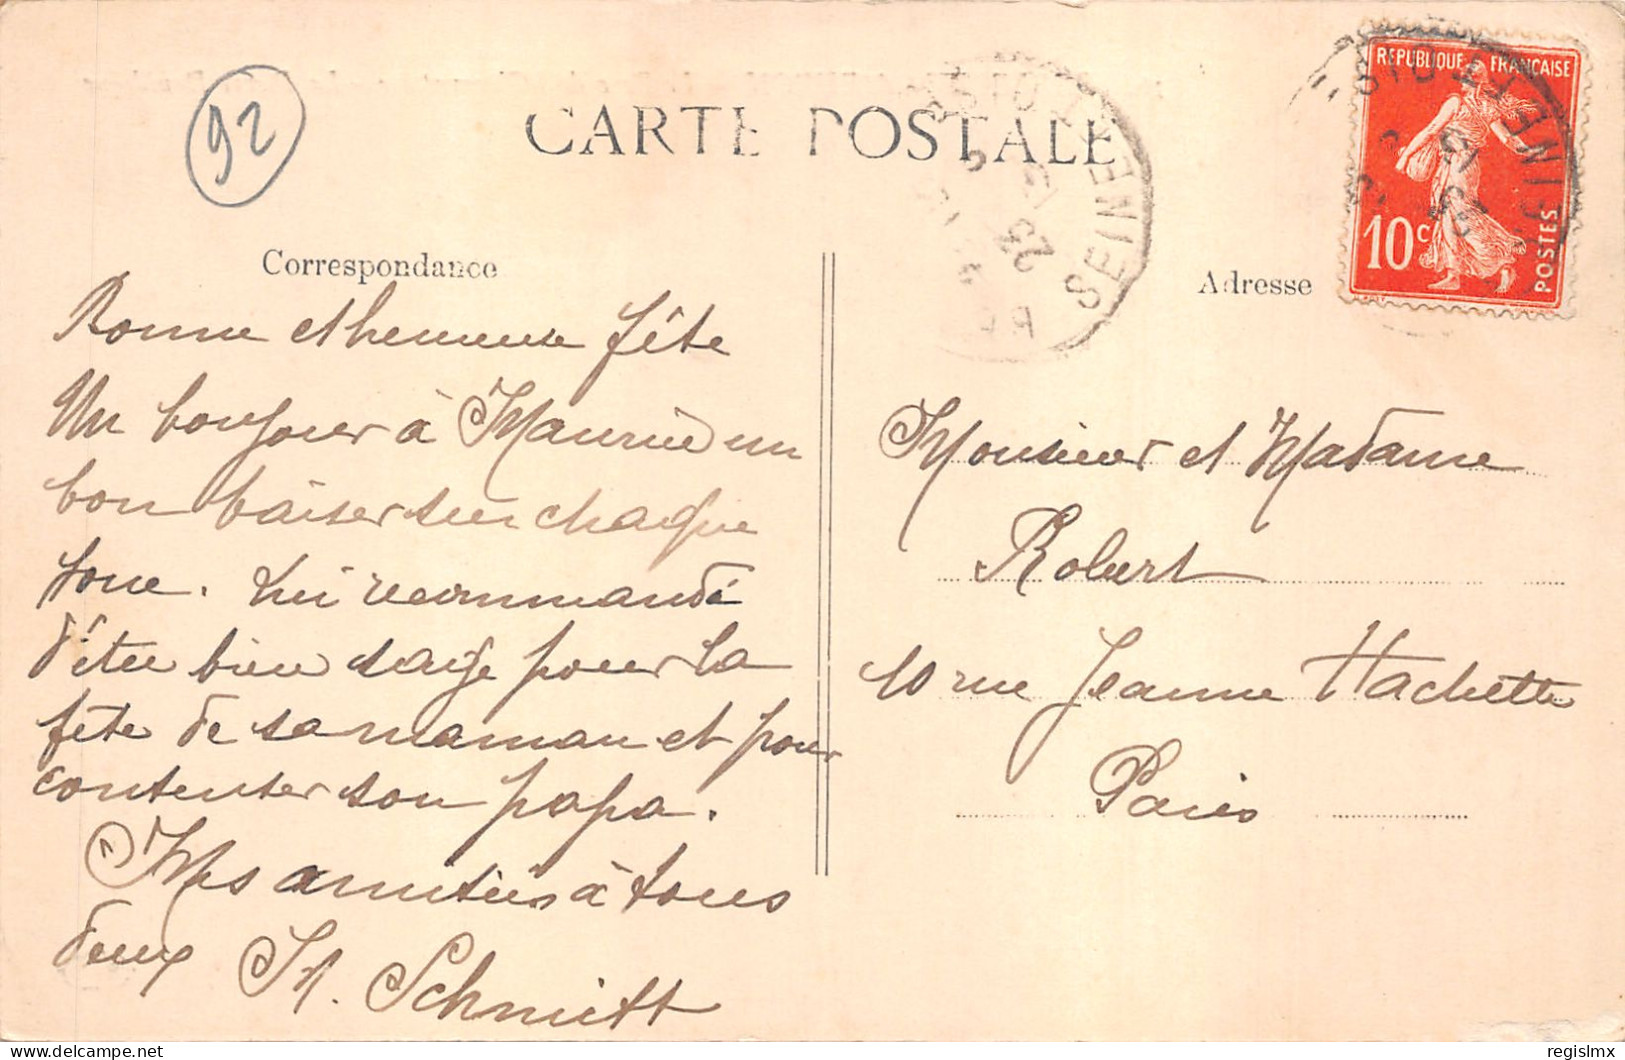 92
CARTE POSTALE
REPUBLIQUE FRANÇAISE
10c
POSTES
SEINE
SEINE
Correspondance
Adresse
Bonne et heureuse fête
Un bonjour à Maurice un
bon baiser sur chaque
joue. Lui recommandé
d'être bien sage pour la
fête de sa maman et pour
contenter son papa.
Mes amitiés à tous
deux H. Schmitt
Monsieur et Madame
Robert
10 rue Jeanne Hachette
Paris
delcampe.net
regislmx